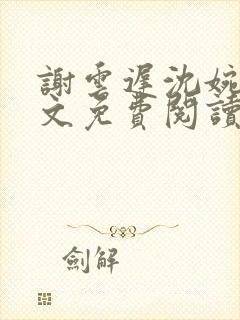 謝雲遲沈婉
文免費閱讀
劍解